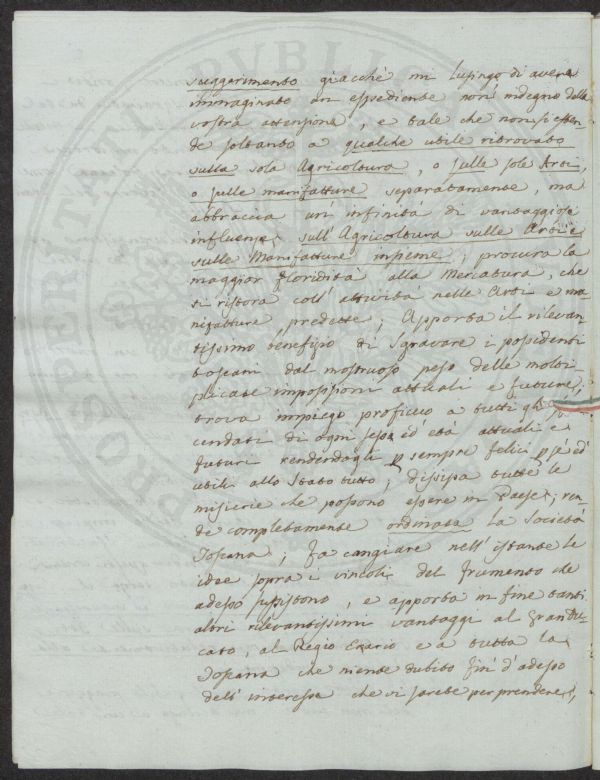 suggerimento giacchè mi lusingo di avere
immaginato un espediente non' indegno della
vostra attenzione, e tale che non si esten-
de soltanto a qualche utile ritrovato
sulla sola Agricoltura, o sulle sole Arti,
o sulle manifatture separatamente, ma
abbraccia un' infinità di vantaggiose
influenze sull' Agricoltura sulle Arti e
sulle Manifatture insieme; procura la
maggior floridità alla Mercatura, che
si ristora coll' attività nelle Arti e ma-
nifatture predette; Apporta il rilevan-
tissimo benefizio di Sgravare i possidenti
toscani dal mostruoso peso delle molti-
plicate imposizioni attuali e future;
trova impiego proficuo a tutti gli
cendati di ogni sesso ed' età attuali e
futuri rendendogli p sempre felici p se ed'
utili allo Stato tutto; dissipa tutte le
miserie che possono essere in Paese; ren-
de completamente ordinata la Società
Toscana; fa cangiare nell' istante le
idee sopra i vincoli del frumento che
adesso sussistono, e apporta in fine tanti
altri rilevantissimi vantaggi al GranDu-
cato, al Regio Erario e a tutta la
Toscana che niente dubito fin' d'adesso
dell' interesse che vi sarete per prendere,
PROSPERITATI PVBLICAE